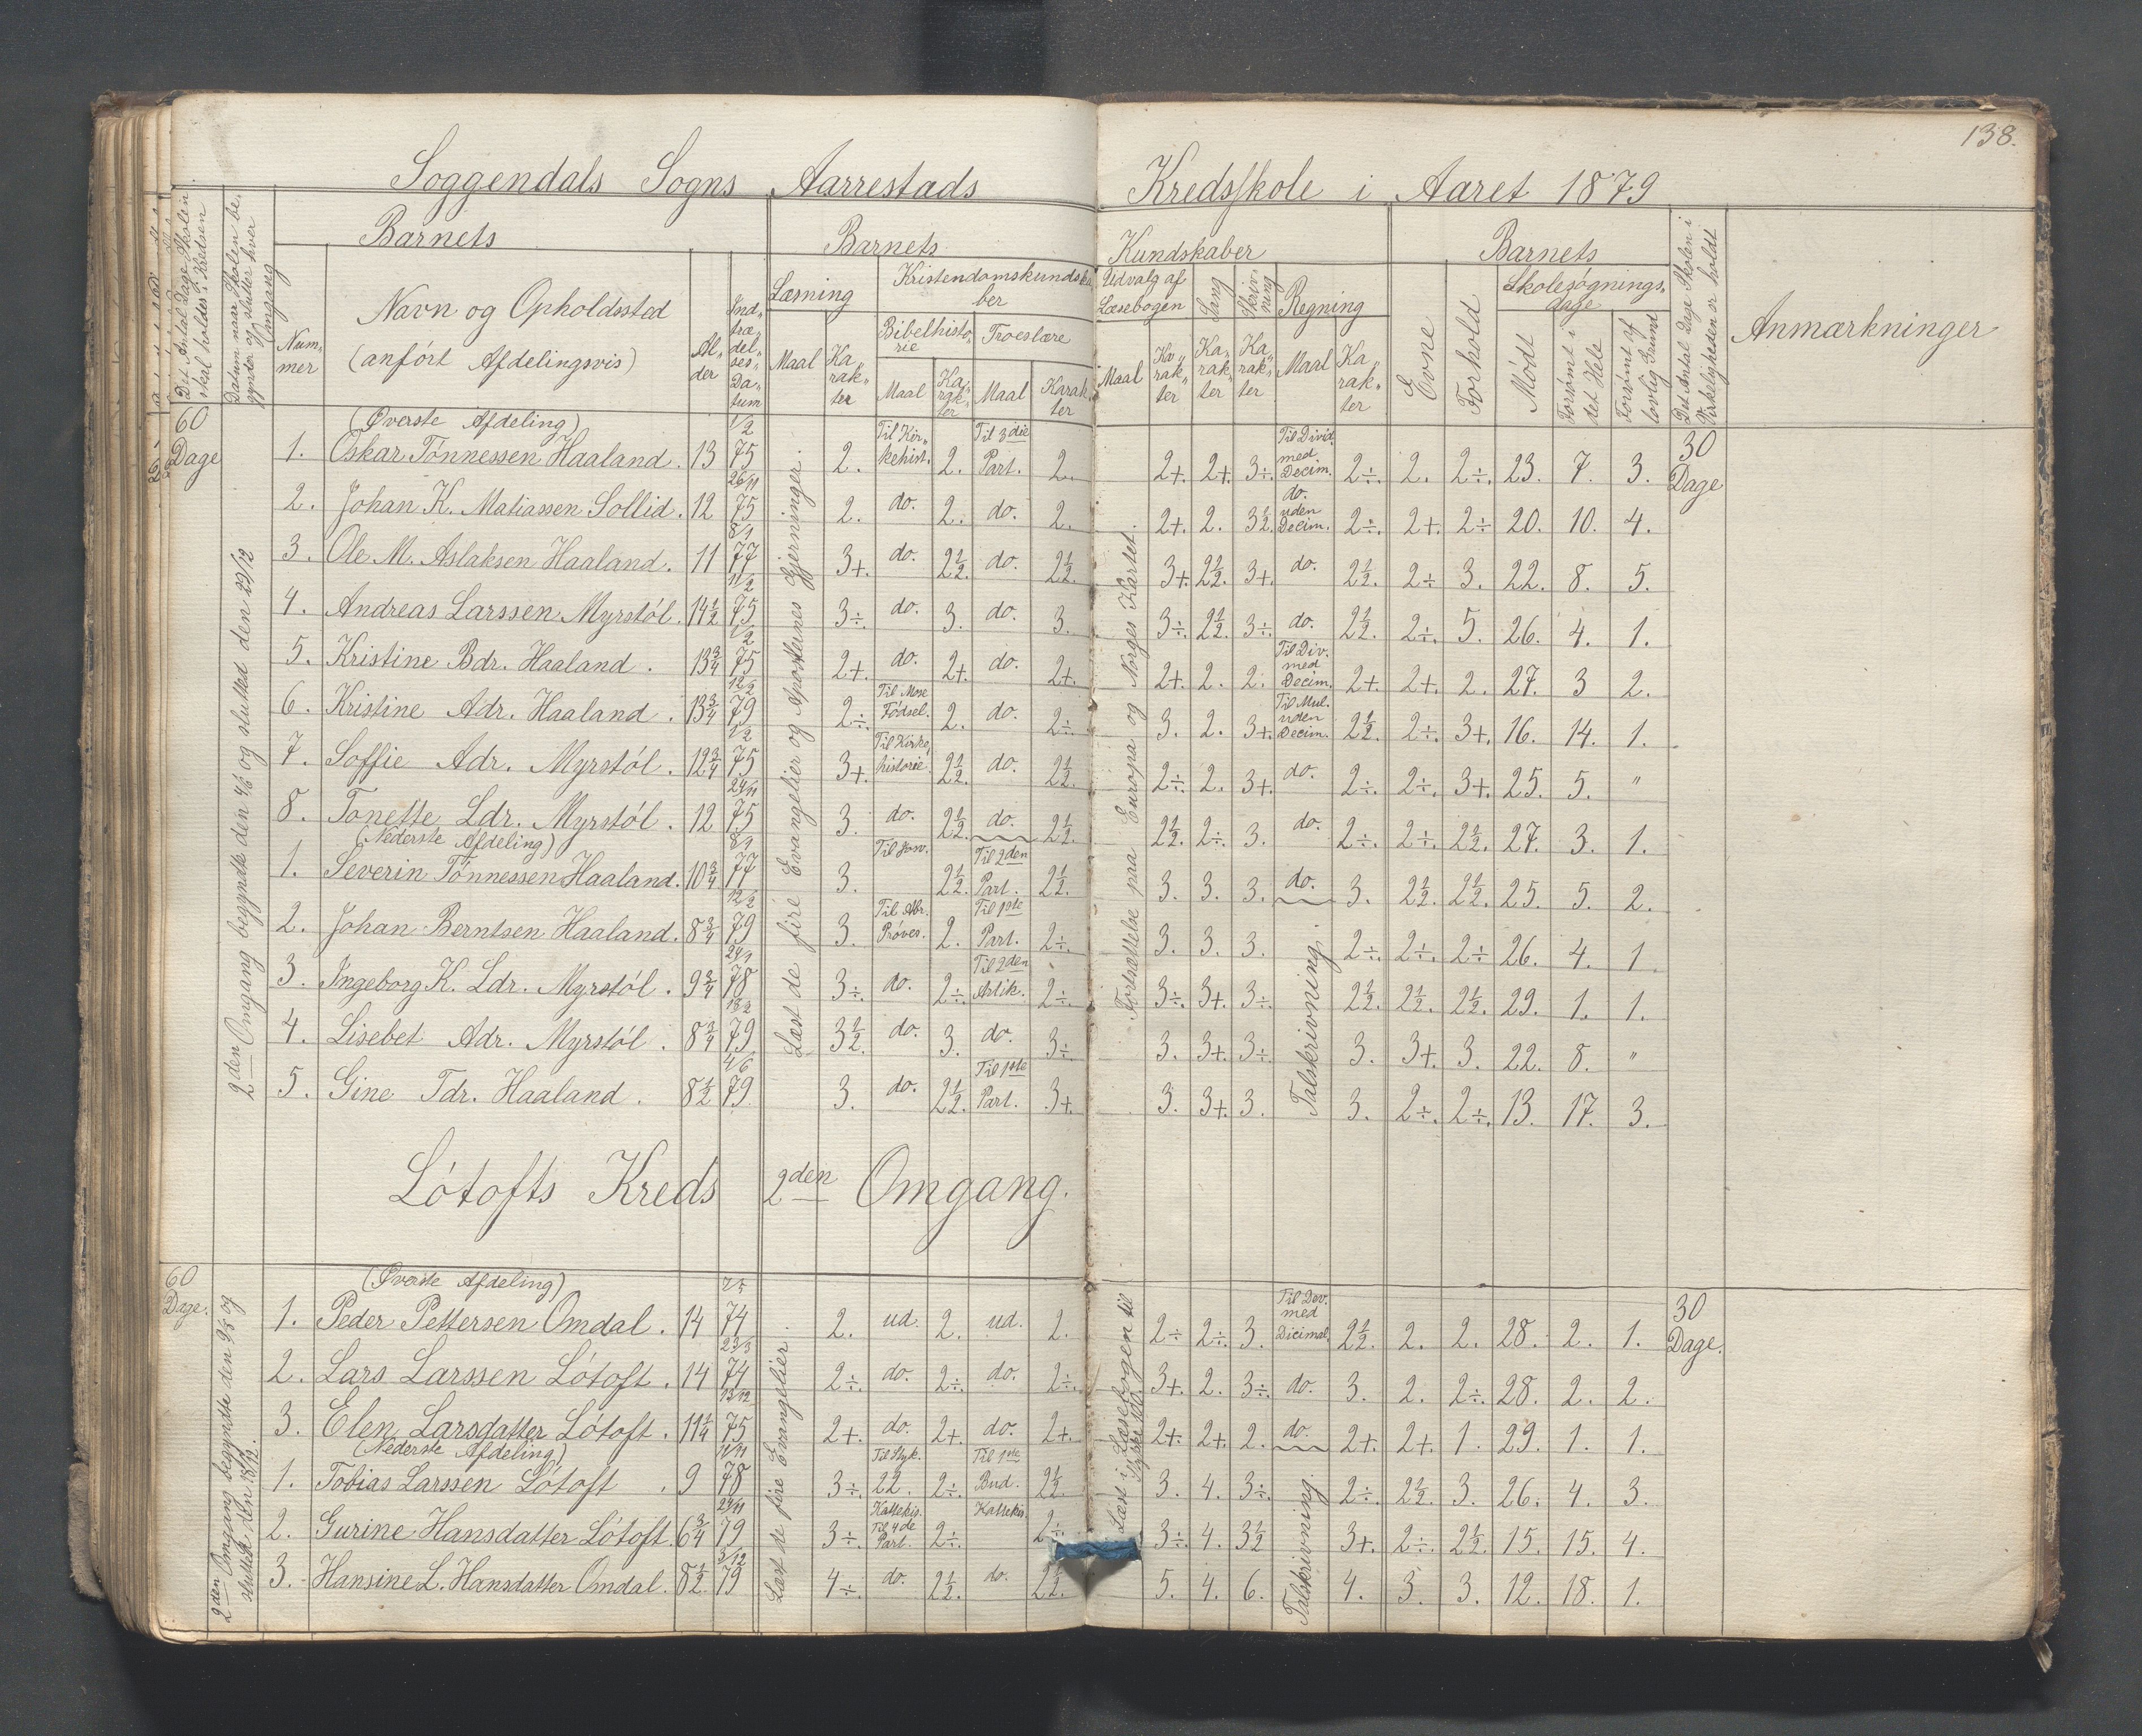 138.
Soggendals Sogns Aarrestads Kredsskole i Aaret 1879
Det Antal Dage Skolen skal holdes i Kredsen
Datum naar Skolen begynder og slutter hver Omgang
Barnets
Barnets Kundskaber
Barnets
Det Antal Dage Skolen i Virkeligheden er holdt
Anmærkninger
Num-mer
Navn og Opholdssted
(anført Afdelingsvis)
Al-der
Ind-træ-del-ses-Da-tum
Læsning
Kristendomskundskaber
Bibelhistorie
Troeslære
Udvalg af Læsebogen
Sang
Skrivning
Regning
Evne
Forhold
Skolesøgnings-dage
Maal
Ka-rak-ter
Maal
Ka-rak-ter
Maal
Karakter
Maal
Ka-rak-ter
Ka-rak-ter
Ka-rak-ter
Maal
Ka-rak-ter
Mødt
Forsømt i det Hele
Forsømt af lovlig Grund
60 Dage
2den Omgang begyndte den 4/6 og sluttede den 22/12
Læst de fire Evangelier og Apostlenes Gjerninger.
Fortsættelse paa Europa og Norges Kartet.
Talskrivning.
30 Dage
(Øverste Afdeling)
1. Oskar Tønnessen Haaland. 13 1/2 75 2. Til Kirkehist. 2. Til 3die Part. 2. 2+. 2+. 3÷. Til Divid. med Decim. 2÷. 2. 2÷. 23. 7. 3.
2. Johan K. Matiassen Sollid. 12 26/11 75 2. do. 2. do. 2. 2+. 2. 3½. do. uden Decim. 2÷. 2+. 2÷ 20. 10. 4.
3. Ole M. Aslaksen Haaland. 11 8/1 77 3+. do. 2½. do. 2½. 3+. 2½. 3+. do. 2½. 2÷ 3. 22. 8. 5.
4. Andreas Larssen Myrstól. 14½ 1/2 75 3÷. do. 3. do. 3. 3÷. 2½. 3÷. do. 2½. 2÷. 5. 26. 4. 1.
5. Kristine Bdr. Haaland. 13¾ 1/2 75 2+. do. 2+. do. 2+. 2+. 2. 2. Til Div. med Decim. 2+. 2+. 2. 27. 3 2.
6. Kristine Adr. Haaland. 13¾ 12/2 79 2÷. Til Mose Fødsel. 2. do. 2÷. 3. 2. 3+. Til Mul. uden Decim. 2½. 2÷. 3+. 16. 14. 1.
7. Soffie Adr. Myrstól. 12¾ 1/2 75 3+. Til Kirkehistorie. 2½. do. 2½. 2÷. 2. 3+. do. 2÷. 2÷. 3+. 25. 5. "
8. Tonette Ldr. Myrstól. 12 24/11 75 3. do. 2½. do. 2½. 2½. 2÷. 3. do. 2÷. 2÷. 2½. 27. 3. 1.
(Nederste Afdeling)
1. Severin Tønnessen Haaland. 10¾ 8/1 77 3. 2½. Til 2den Part. 2½. 3. 3. 3. do. 3. 2½. 2½. 25. 5. 2.
2. Johan Berntsen Haaland. 8¾ 12/2 79 3. Til Abr. Prøves. 2. Til 1ste Part. 2÷. 3. 3. 3. 2÷. 2÷. 2÷ 26. 4. 1.
3. Ingeborg K. Ldr. Myrstól. 9¾ 24/1 78 3÷. do. 2÷. Til 2den Artik. 2÷. 3÷. 3+. 3÷. 2½. 2½. 2½. 29. 1. 1.
4. Lisebet Adr. Myrstól. 8¾ 79 3½. do. 3. do. 3÷. 3. 3+. 3÷. 3. 3+. 3. 22. 8. "
5. Gine Tdr. Haaland. 8½ 4/6 79. 3. do. 2½. Til 1ste Part. 3+. 3. 3+. 3. 3. 2÷. 2÷. 13. 17. 3.
Lótofts Kreds 2den Omgang.
60 Dage.
2den Omgang begyndte den 9/8 og sluttede den 18/12.
Læst de fire Evangelier.
Læst i Læsebogen til Stykke 100.
Talskrivning.
30 Dage.
(Øverste Afdeling)
1. Peder Pettersen Omdal. 14 74 2. ud. 2. ud. 2. 2÷ 2÷. 3. Til Dev. med Dicimal. 2½. 2. 2. 28. 2. 1.
2. Lars Larssen Lótoft. 14 23/3 74 2÷. do. 2÷. do. 2÷. 3+. 2. 3÷. do. 3. 2. 2÷. 28. 2. 2.
3. Elen Larsdatter Lótoft. 11¼ 13/12 75 2+. do. 2+. do. 2+. 2+. 2+. 2. do. 2+. 2+. 1. 29. 1. 1.
(Nederste Afdeling)
1. Tobias Larssen Lótoft. 9 11/11 78 3÷. Til Styk. 22. 2÷. Til 1ste Bud. 2½. 3. 4. 3÷. 2÷. 2½. 3. 26. 4. 3.
2. Gurine Hansdatter Lótoft. 6¾ 24/11 79 3÷. Kattekis. Til 4de Part. 2÷. Kattekis. 2÷. 3÷. 4. 3½ 3+. 2÷. 2½. 15. 15. 4.
3. Hansine L. Hansdatter Omdal. 8½. 3/12 79 4÷. do. 2½. do. 2½. 5. 4. 6. 4. 3. 3. 12. 18. 1.